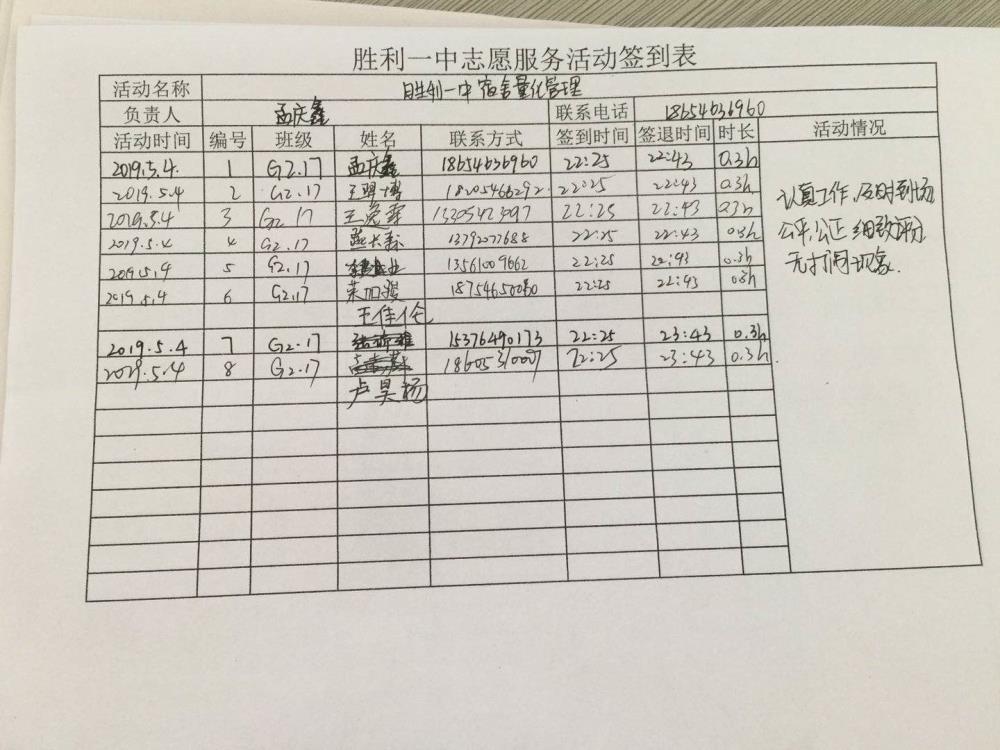 胜利一中志愿服务活动签到表
活动名称 胜利一中宿舍量化管理
负责人 孟庆鑫 联系电话 18654636960
活动时间 编号 班级 姓名 联系方式 签到时间 签退时间 时长 活动情况
2019.5.4. 1 G2.17 孟庆鑫 18654636960 22:25 22:43 0.3h
2019.5.4 2 G2.17 18205466292 22:25 22:43 0.3h
2019.5.4 3 G2.17 王逸霖 13305423097 22:25 22:43 0.3h
2019.5.4 4 G2.17 13792077688 22:25 22:43 0.3h
2019.5.4 5 G2.17 13561009662 22:25 22:43 0.3h
2019.5.4 6 G2.17 18754650080 22:25 22:43 0.3h
王佳伦
2019.5.4 7 G2.17 15376490173 22:25 23:43 0.3h
2029.5.4 8 G2.17 18605310007 22:25 23:43 0.3h
卢昊杨
认真工作,及时到场
公平,公正 细致评分
无打闹现象.